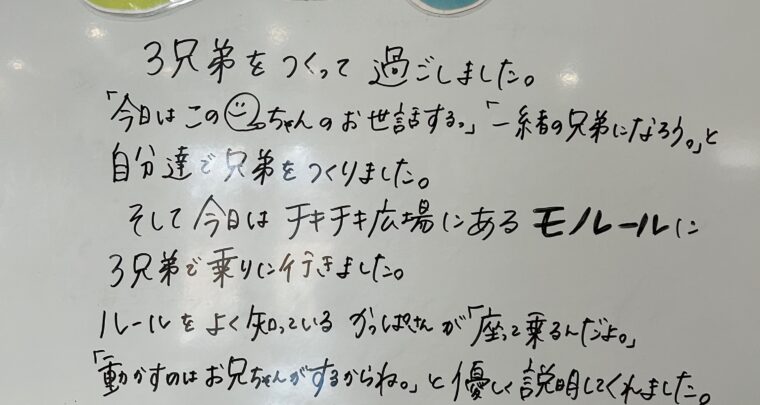 3兄弟をつくって過ごしました。
「今日はこの☺っちゃんのお世話する。」「一緒の兄弟になろう。」と
自分達で兄弟をつくりました。
そして今日はチキチキ広場にあるモノレールに
3兄弟で乗りに行きました。
ルールをよく知っているかっぱさんが「座って乗るんだよ。」
「動かすのはお兄ちゃんがするからね。」と優しく説明してくれました。